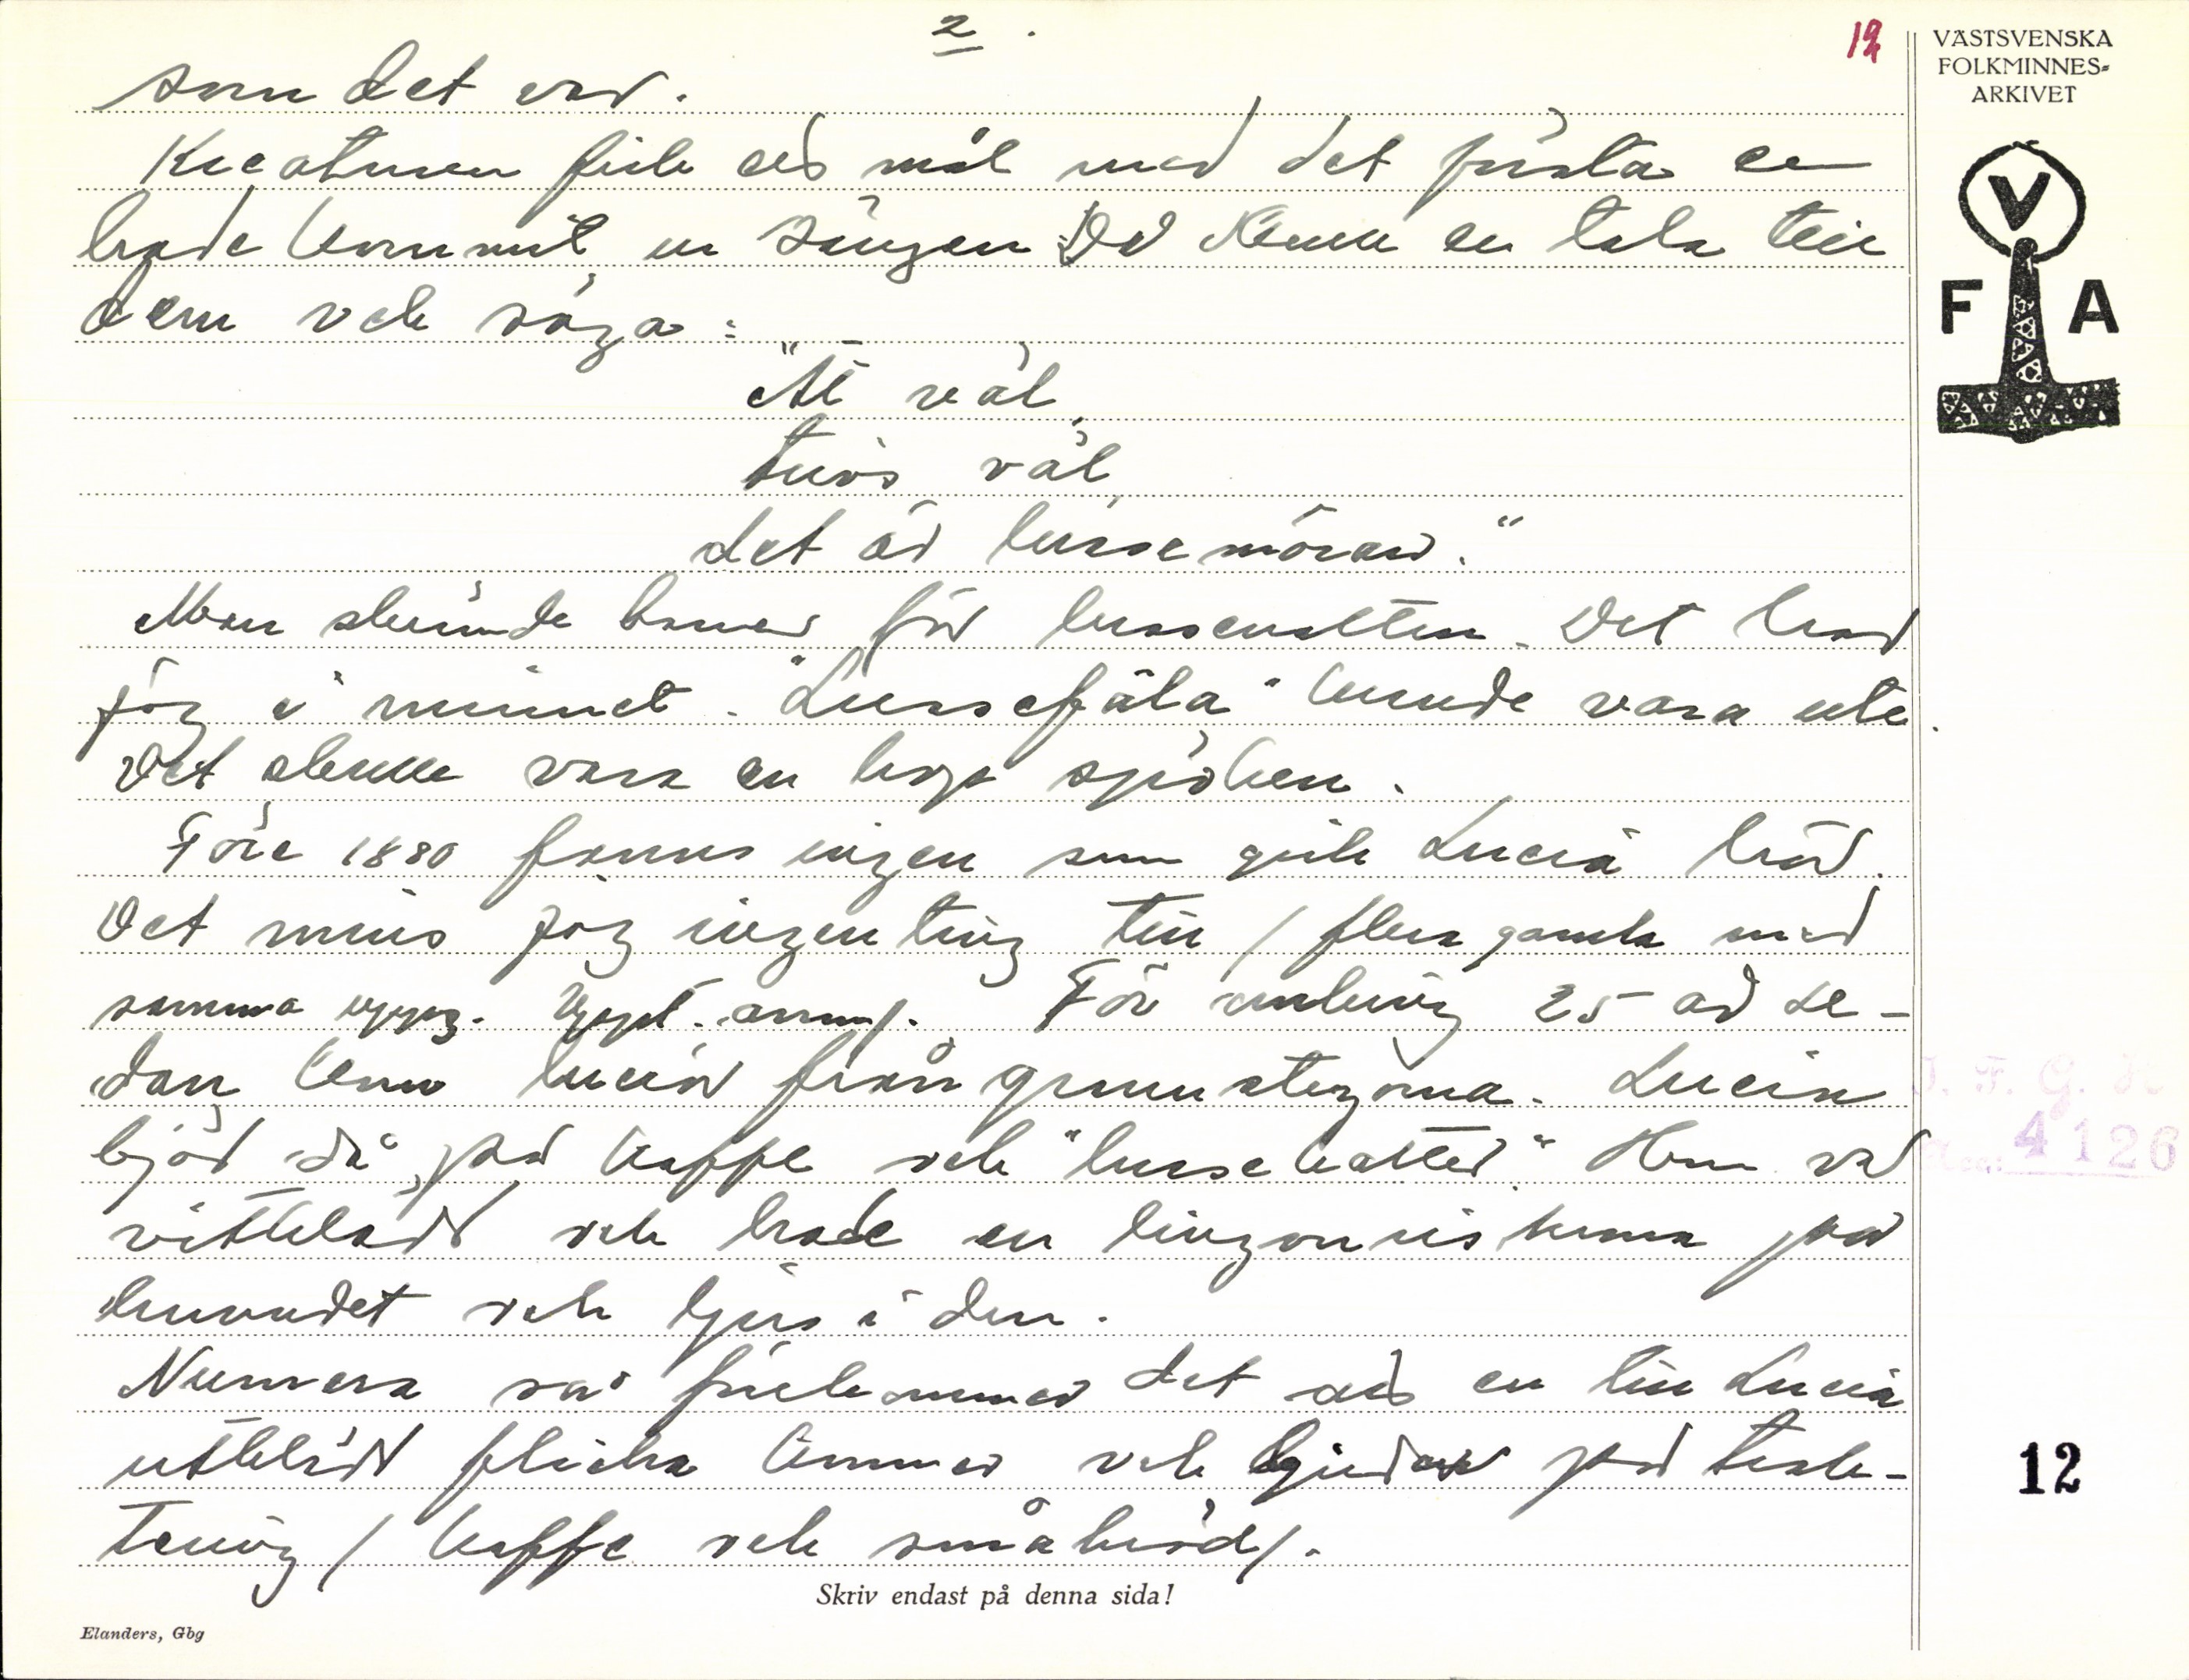 2.
12
VÄSTSVENSKA
FOLKMINNES-
ARKIVET
V
F A
som det var.
Kreaturen fick ett mål med det första en
hade kommit ur sängen. Då skulle en tala till
dem och säga:
"Ät väl,
trivs väl,
det är lussemoren."
Man skrämde barnen för lussenatten. Det har
jag i minnet. "Lussefåla" kunde vara ute.
Det skulle vara en hop spöken.
Före 1880 fanns ingen som gick Lucia här.
Det minns jag ingenting till / flera gamla med
samma uppg. Uppt. anm/. För omkring 25 år se-
dan kom lucior från grannstugorna. Lucian
bjöd då på kaffe och "lussekatter". Hon var
vitklädd och hade en lingonriskrona på
huvudet och ljus i den.
Numera så förekommer det att en till Lucia
utklädd flicka kommer och bjuder på trak-
tering / kaffe och småbröd/.
I. F. G. H.
4126
12
Skriv endast på denna sida!
Elanders, Gbg